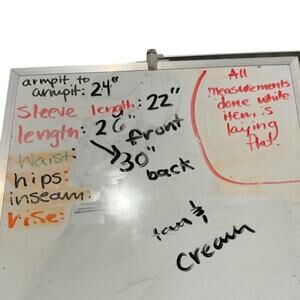 armpit to
armpit: 24"
Sleeve length: 22"
length: 26" front
30" back
Waist:
hips:
inseam:
rise:
All
measurements
done while
item is
laying
flat.
tan &
cream